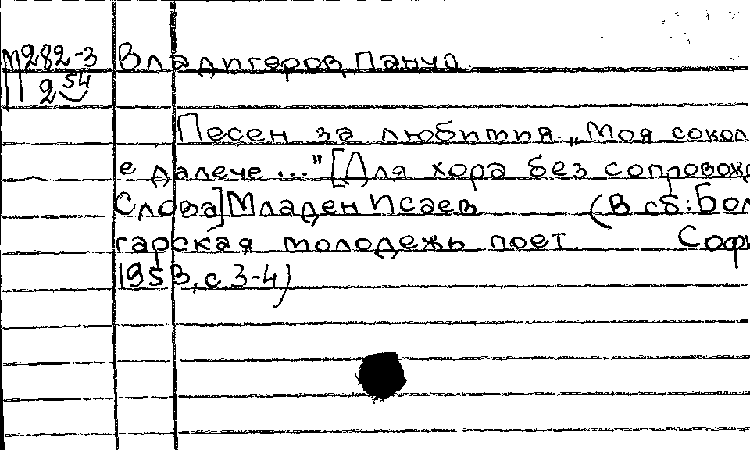 М282-3 Владигеров, Панчо
11 2 54
Песен за любимия „Моя сокол
е далече..." [Для хора без сопровожд
Слова] Младен Исаев (В сб: Бол
гарская молодежь поет Софи
1953, с. 3-4)